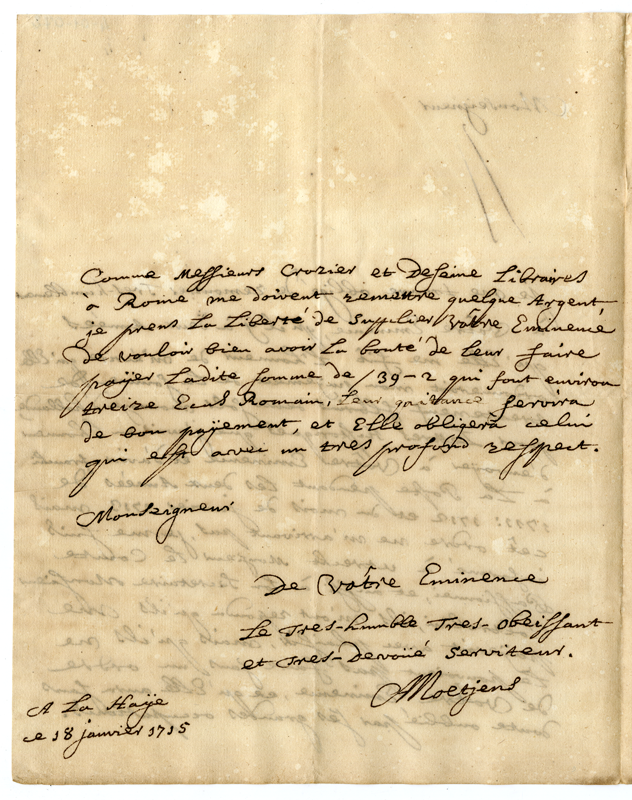 Comme Messieurs Crozier et Deseine Libraires
a Rome me doivent remettre quelque Argent
je prens La Liberté de Supplier Vôtre Eminence
de vouloir bien avoir La bonté de Leur faire
payer Ladite somme de 39-2 qui font environ
treize Ecus Romain, Leur quitance servira
de bon payement, et Elle obligera celui
qui est avec un tres profond respect.
Monseigneur
De Vôtre Eminence
Le Tres-humble Tres-Obeissant
et Tres-Devoüé Serviteur.
AMoetjens
A La Haÿe
ce 18 janvier 1715